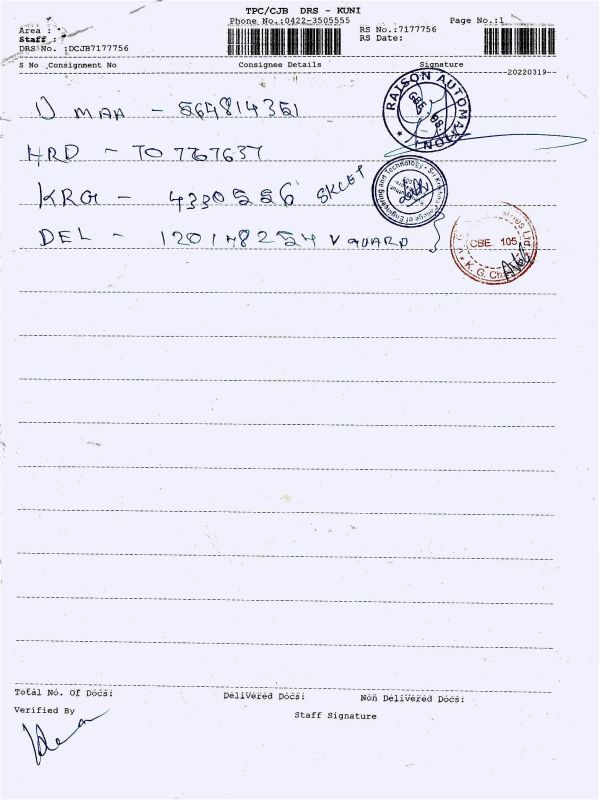 TPC/CJB DRS - KUNI
Phone No.:0422-3505555
Page No.:1
Area :
RS No.:7177756
Staff :
RS Date:
DRS No. :DCJB7177756
S No Consignment No Consignee Details Signature
20220319
UMAA - 564814351
HRD - TO 7767637
KRG - 4330556 SKCET
DEL - 120148254 V GUARD
RAISON AUTOMATION
Engineering and Technology
College of
CBE. 105
K. G. Ch
Total No. Of Docs: Delivered Docs: Non Delivered Docs:
Verified By
Staff Signature